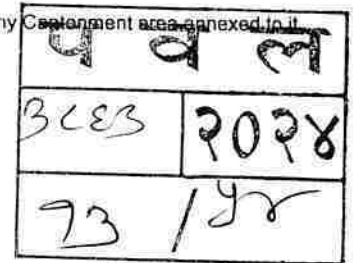 ny Cantonment area annexed to it
प व ल
३८६३ २०२४
१३ / ५४